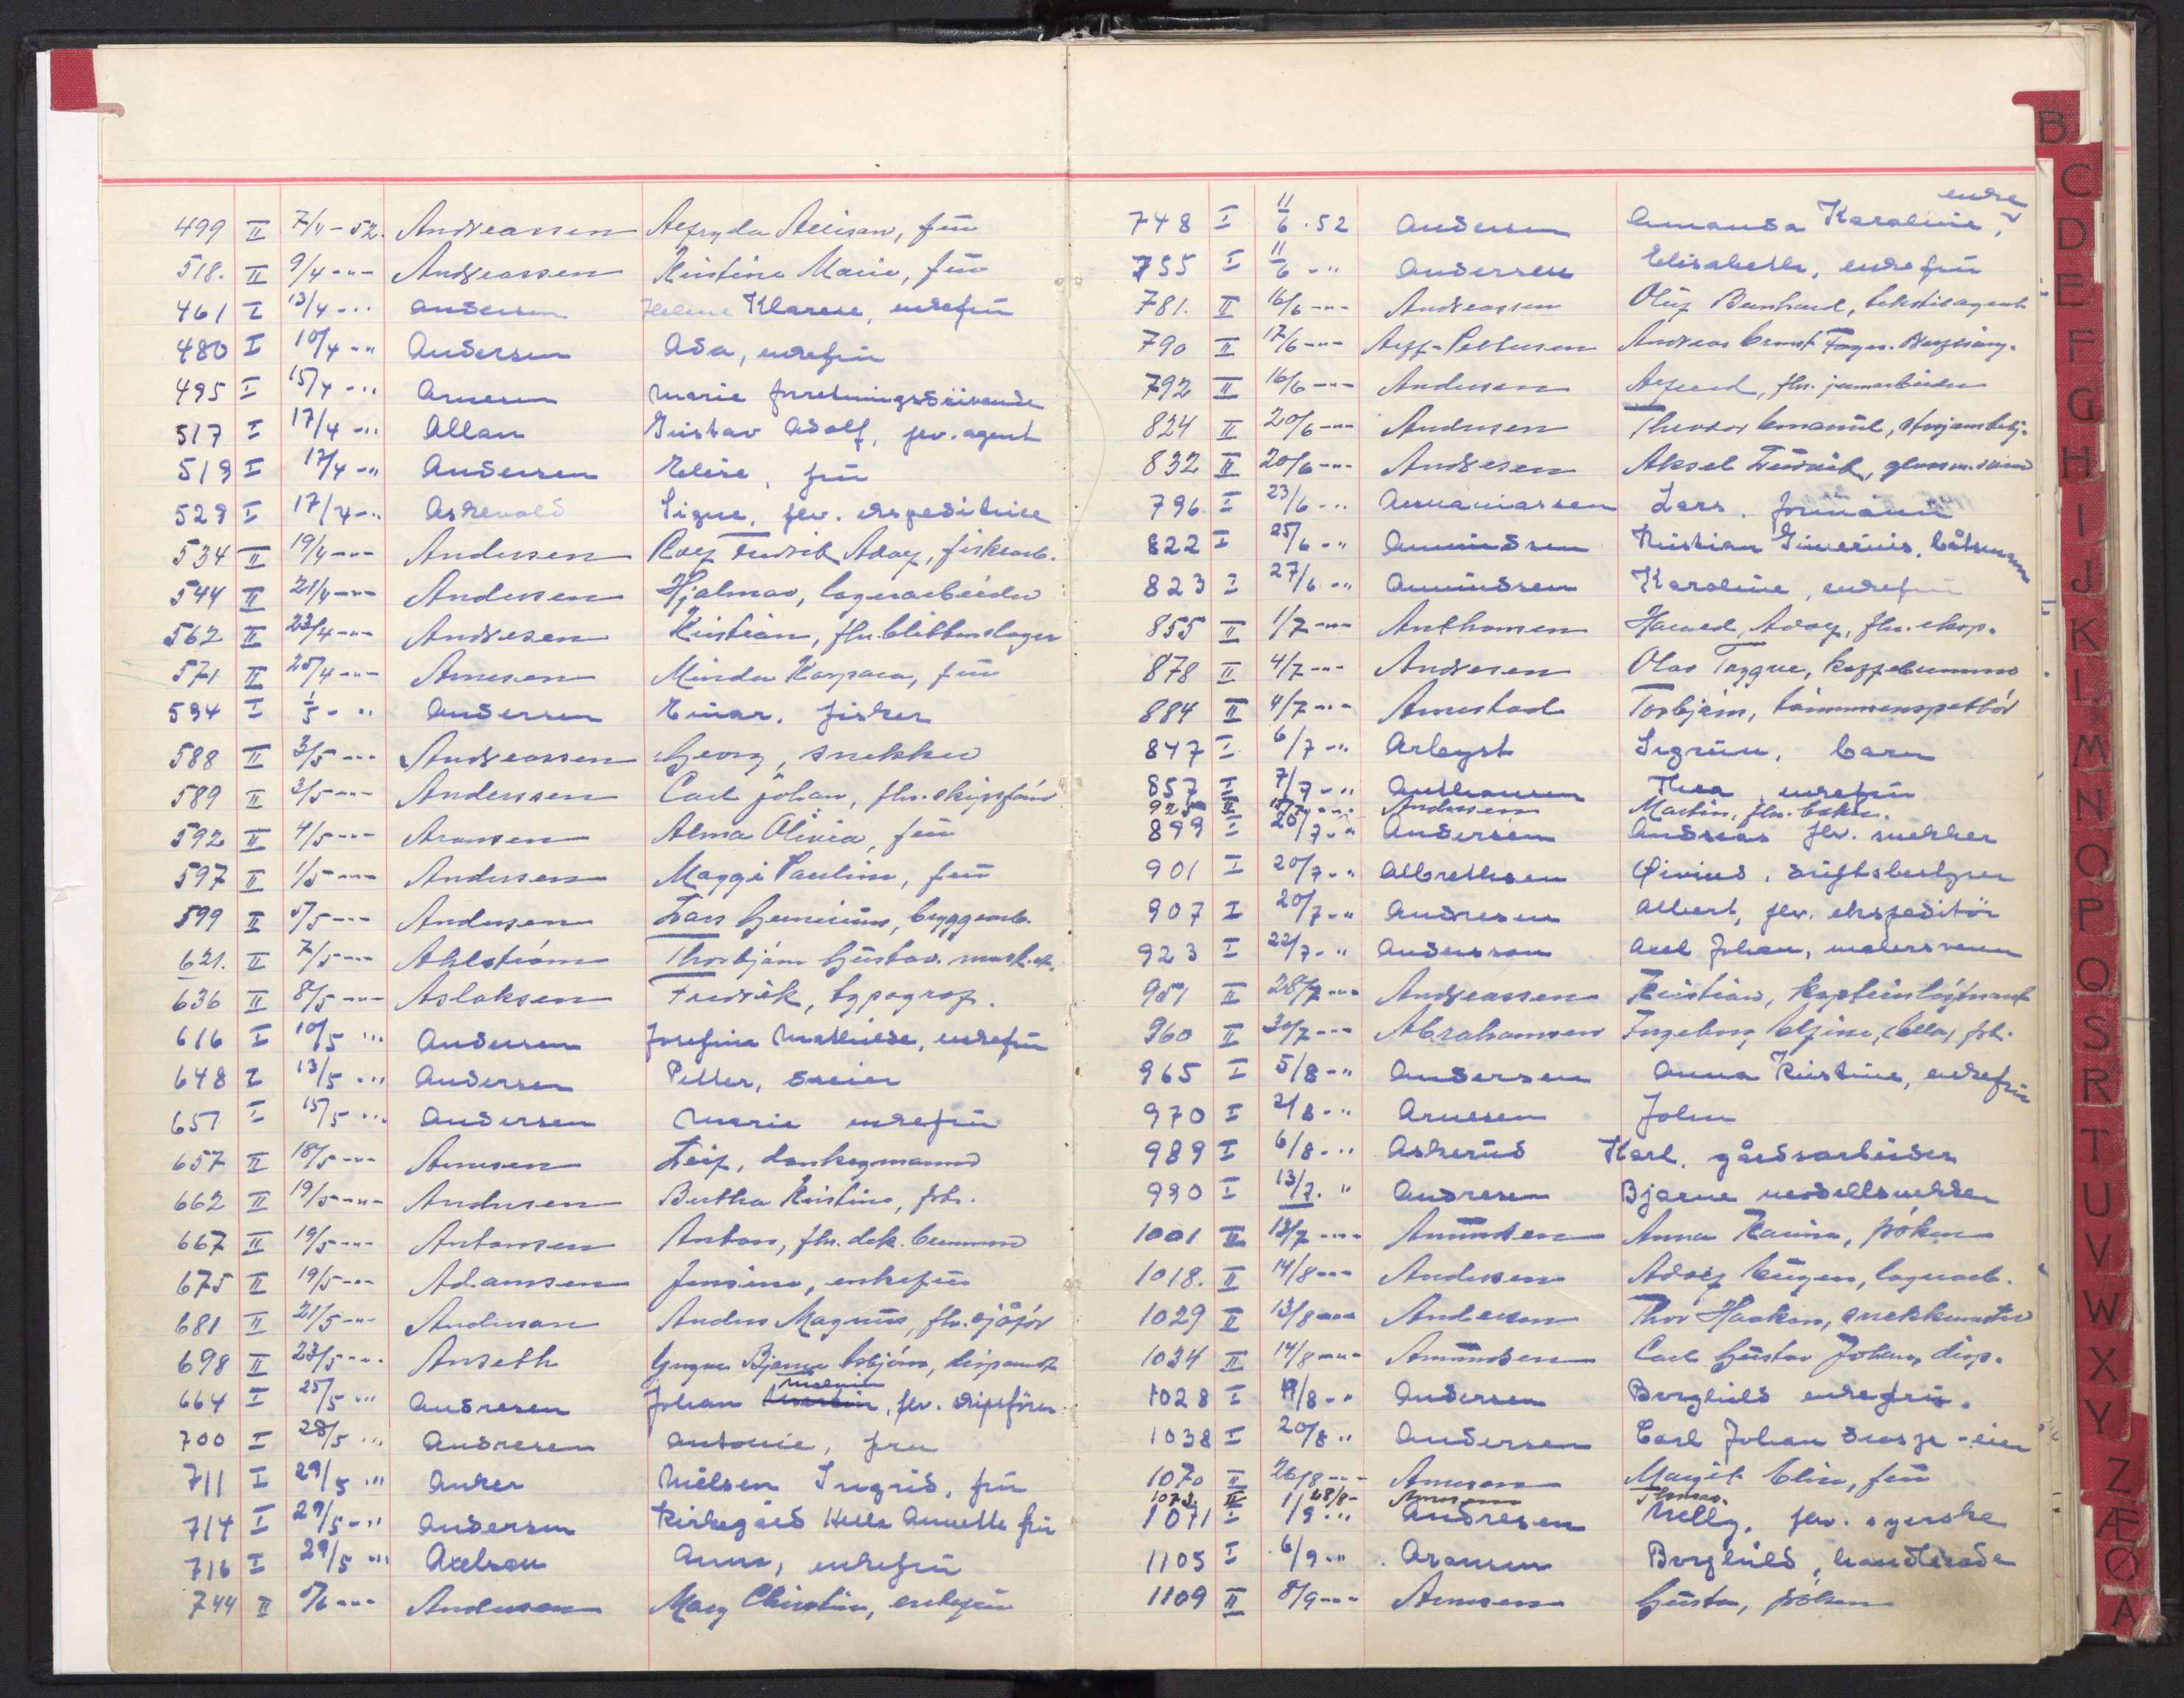 499 II 7/4-52. Andreassen Alfryda, frü
518. II 9/4-"- Andreassen Kristine Marie, frü
461 I 13/4-" Andersen Helene Klarese, enkefrü
480 I 10/4-" Andersen Ada, enkefrü
495 I 15/4-" Arnesen Marie forretningsdrivende
517 I 17/4-" Allan Güstav Adolf, fev. agent
519 I 17/4-" Andersen Elise, frü
529 I 17/4-" Askevold Signe, fev. ekspeditrice
534 II 19/4-"- Andersen Rolf Fredrik Adolf, fiskearb.
544 II 21/4-"- Andersen Hjalmar, lagerarbeider
562 II 23/4-"- Andresen Kristian, fhv. blikkenslager
571 II 25/4-"- Arnesen Minda, frü
594 I 1/5-" Andersen Einar, fisker
588 II 3/5-"- Andreassen Georg, snekker
589 II 3/5-"- Anderssen Carl Johan, fhv. skipsförer
592 II 4/5-"- Aronsen Alma Olivia, frü
597 II 1/5-"- Andersen Maggi Pauline, frü
599 II 5/5-"- Andersen Lars, byggearb.
621. II 7/5-"- Ahlström Thorbjörn Güstav.
636 II 8/5-"- Aslaksen Fredrik, typograf.
616 I 10/5 " Andersen Josefine Mathilde, enkefrü
648 I 13/5 " Andersen Petter, dreier
651 I 15/5 " Andersen Marie enkefrü
657 II 18/5-"- Arnesen Leif,
662 II 19/5-"- Andersen Bertha Kristine, frk.
667 II 19/5-"- Antonsen Anton, fhv.
675 II 19/5-"- Adamsen Jensine, enkefrü
681 II 21/5-"- Anderson Anders Magnüs, fhv. sjåför
698 II 23/5-"- Anseth Yngve Bjarne Asbjörn, disponent
664 I 25/5 " Andresen Johan Marvin, fev. skipsförer
700 I 28/5 " Andresen Antonie, fru
711 I 29/5 " Anker Nielsen Ingrid, frü
714 I 29/5-" Andersen Kirkegård Helle Annette frü
716 I 29/5 " Axelson Anna, enkefrü
744 II 5/6-"- Anderson Mary Christine, enkefrü
748 I 11/6.52 Andersen Amanda Karoline, enke
755 I 11/6-" Andersen Elisabeth, enkefrü
781. II 16/6-"- Andreassen Olüf Bernhard, tekstilagent
790 II 17/6-"- Alff-Pettersen Andreas Ernst
792 II 16/6-"- Andersen Alfred, fhv. jernarbeider
824 II 20/6-"- Andersen Theodor Emanüel,
832 II 20/6-"- Andresen Aksel Fredrik,
796 I 23/6-" Annaniassen Lars. formann
822 I 25/6-" Amündsen Kristian, båtsmann
823 I 27/6-" Amündsen Karoline, enkefrü
855 II 1/7-"- Anthonsen Harald Adolf, fhv. eksp.
878 II 4/7-"- Andresen Olav Tryggve,
884 II 4/7-"- Arnestad Torbjörn,
847 I 6/7-" Arbyst Sigrün, barn
857 I 7/7-" Anthonsen Thea, enkefrü
925 II 15/7-"- Andersen Martin, fhv. baker.
899 I 20/7-" Andersen Andreas fev. snekker
901 I 20/7-" Albrethsen Øivind, driftsbestyrer
907 I 20/7-" Andresen Albert, fev. ekspeditör
923 I 22/7-" Andersson Axel Johan, malersvenn
951 II 28/7-"- Andreassen Kristian, kapteinløytnant
960 II 30/7-"- Abrahamsen Ingeborg Elfine, (Ella), frk.
965 I 5/8-" Andersen Anna Kristine, enkefrü
970 I 2/8-" Arnesen John
989 I 6/8-" Askerüd Karl, gårdsarbeider
990 I 13/7. " Andresen Bjarne modellsnekker
1001 II 13/7-"- Amündsen Anna Karine, frøken
1018. II 14/8-"- Andersen Adolf Eügen, lagerarb.
1029 II 13/8-"- Anderson Thor Haakon, snekkermester
1034 II 14/8-"- Amündsen Carl Güstav Johan, disp.
1028 I 19/8-" Andersen Borghild enkefrü.
1038 I 20/8 " Andersen Carl Johan drosje-eier
1070 II 26/8-"- Arneson Margit Elin, frü
1073. II 28/8- Arneson Thomas.
1071 I 1/9 " Andresen Nelly, fev. syerske
1105 I 6/9-" Aronsen Borghild, handlende
1109 II 8/9-"- Arnesen Güsta, frøken
B
C
D
E
F
G
H
I
J
K
L
M
N
O
P
Q
S
R
T
U
V
W
X
Y
Z
Æ
Ø
A